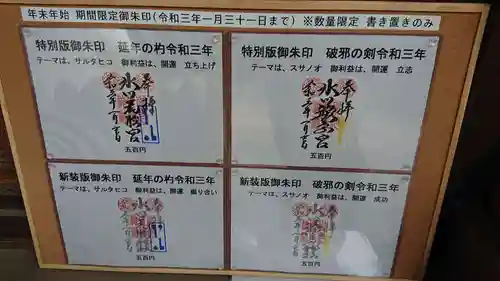 年末年始 期間限定御朱印(令和三年一月三十一日まで)※数量限定 書き置きのみ
特別版御朱印 延年の杓令和三年
テーマは、サルタヒコ 御利益は、開運 立ち上げ
奉拝
五百円
特別版御朱印 破邪の剣令和三年
テーマは、スサノオ 御利益は、開運 立志
奉拝
五百円
新装版御朱印 延年の杓令和三年
テーマは、サルタヒコ 御利益は、開運 振り合い
五百円
新装版御朱印 破邪の剣令和三年
テーマは、スサノオ 御利益は、開運 成功
五百円